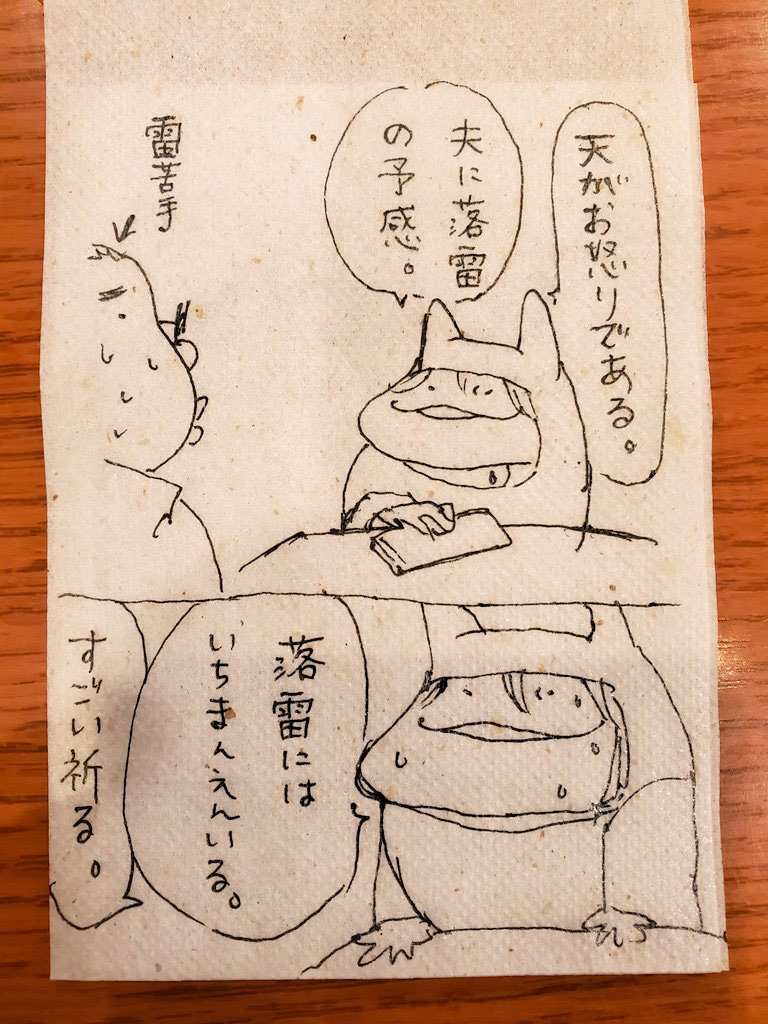 天がお怒りである。
夫に落雷
の予感。
雷苦手
落雷には
いちまんえんいる。
すごい祈る。